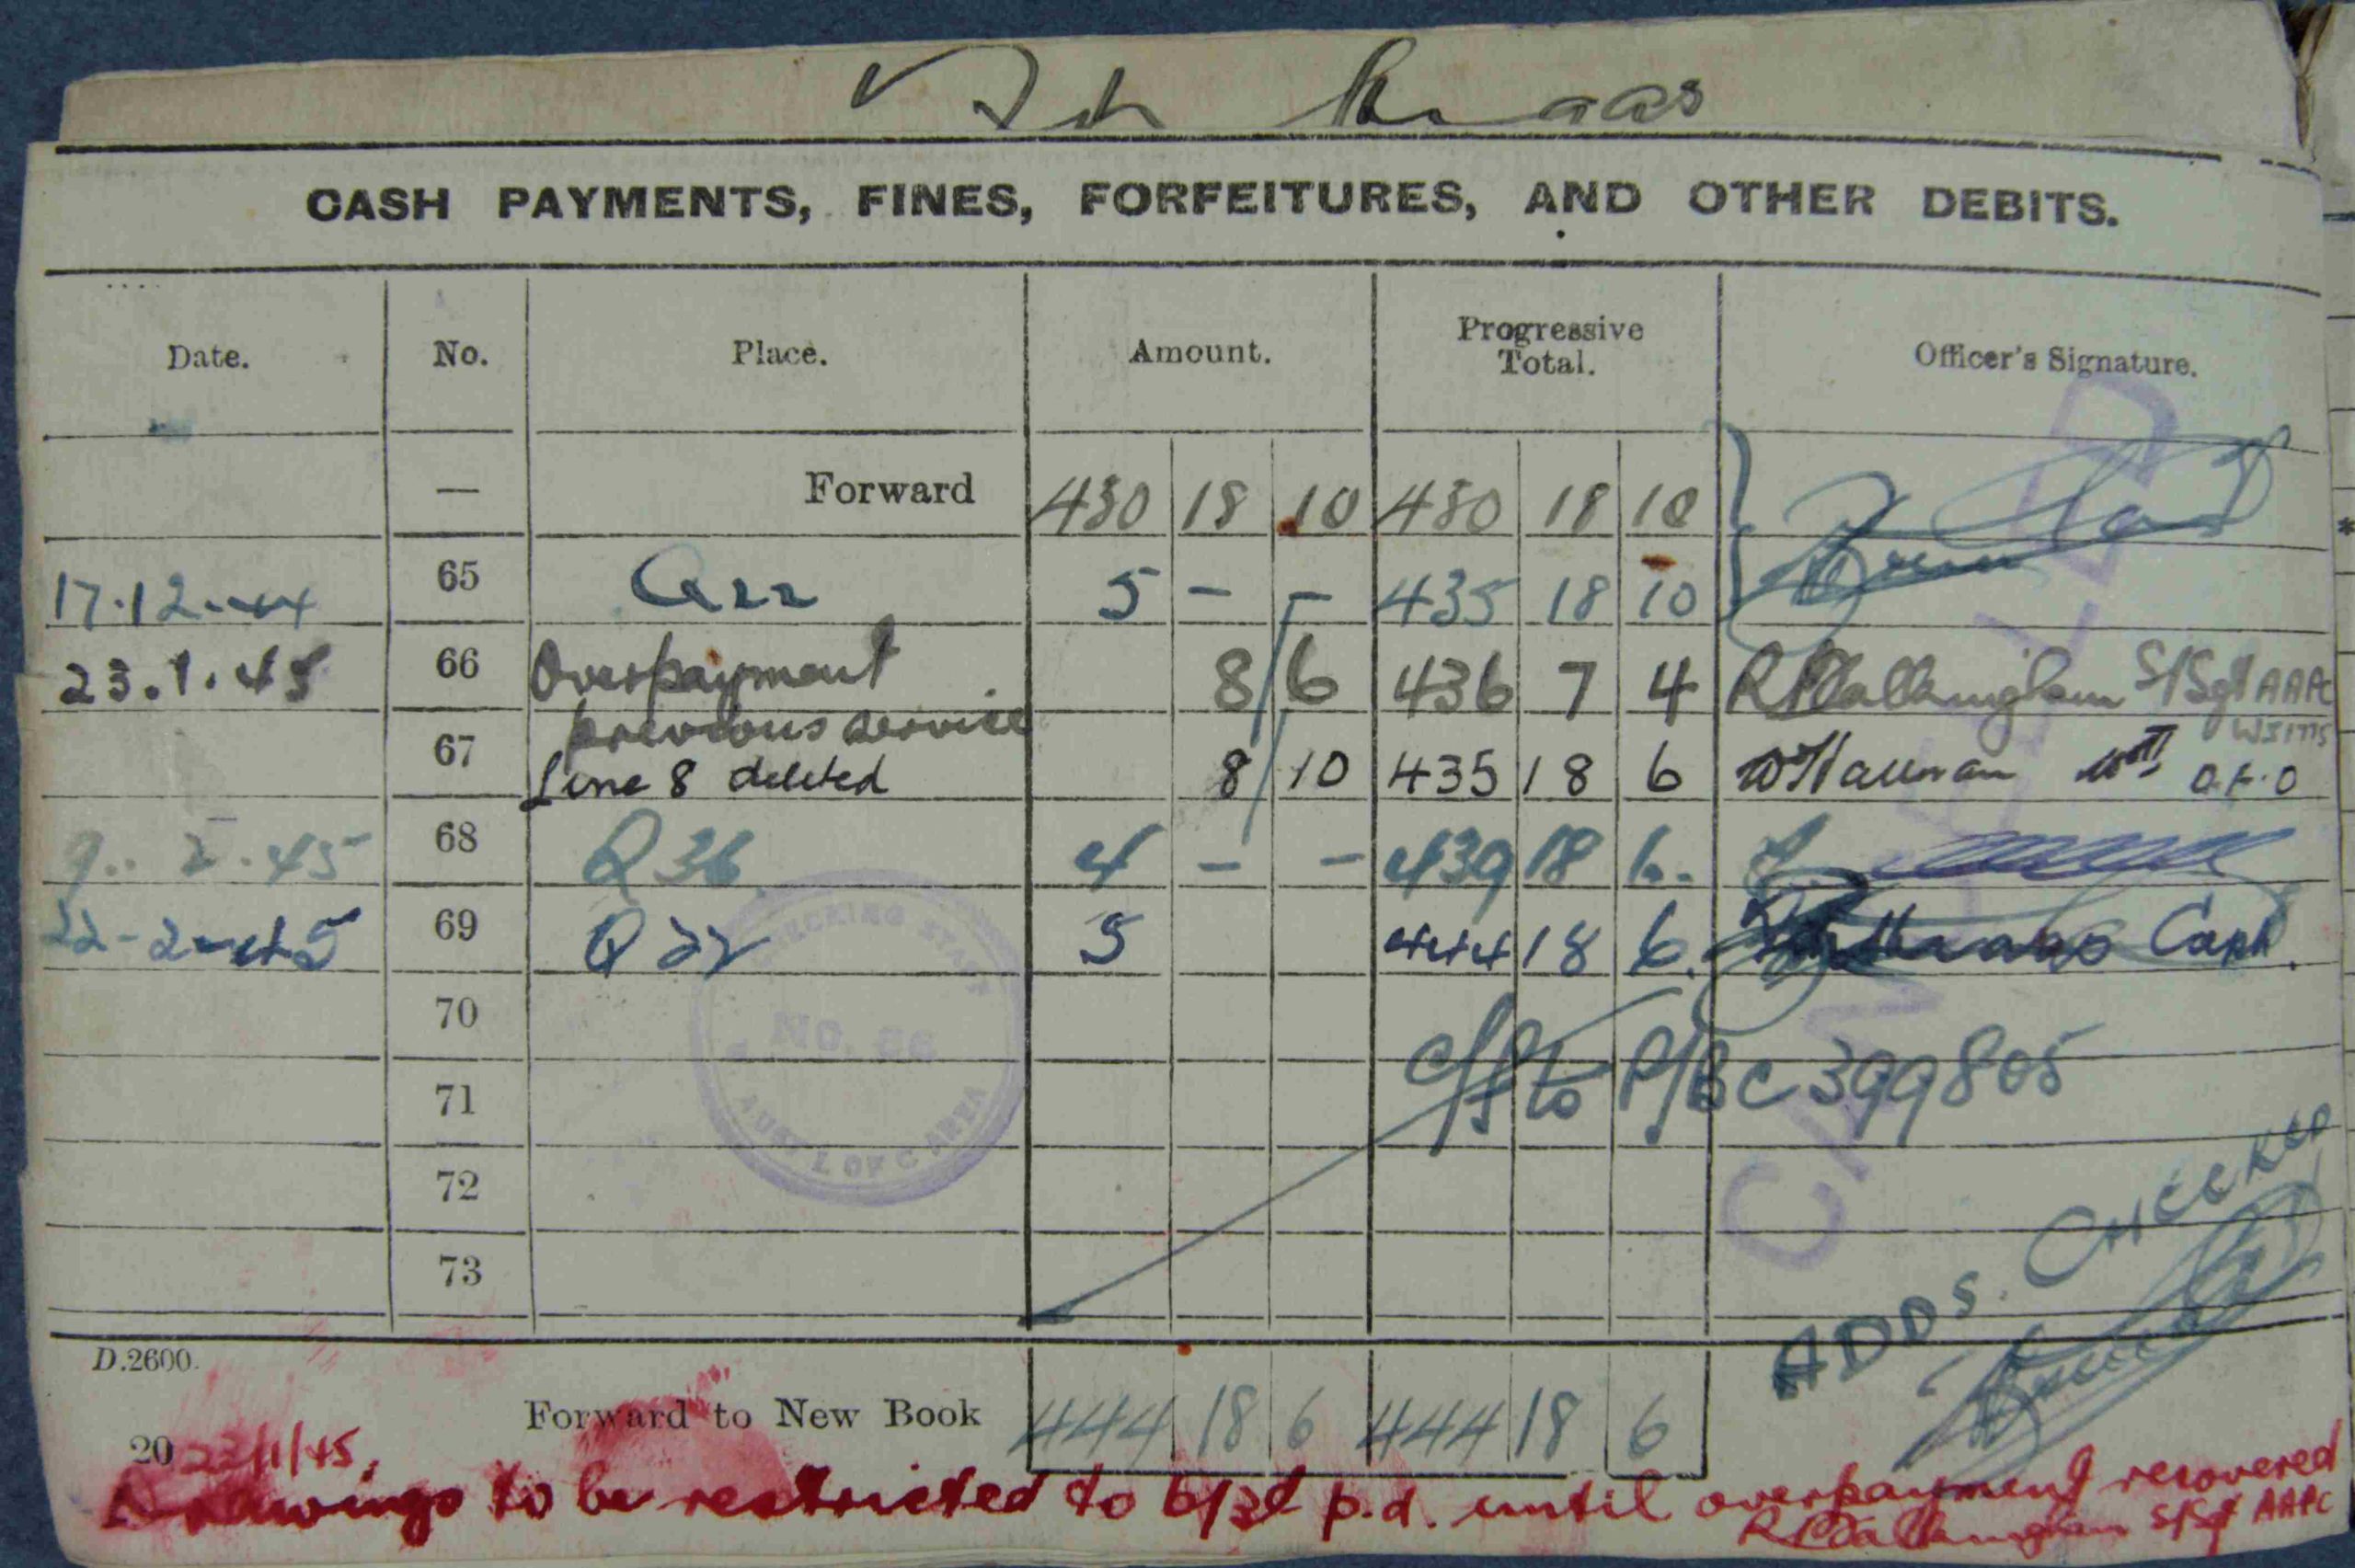 CASH PAYMENTS, FINES, FORFEITURES, AND OTHER DEBITS.
Date. No. Place. Amount. Progressive Total. Officer's Signature.
— Forward 430 18 10 430 18 10
17.12.44 65 Q22 5 - - 435 18 10
23.1.45 66 Overpayment 8/6 436 7 4 S/Sgt AAPC
previous service
67 Line 8 deleted 8/10 435 18 6
9. 2. 45 68 Q36 4 - - 439 18 6.
22-2-45 69 Q22 5 444 18 6. Capt.
70
c/f to P/B C399805
71
72
73
CHECKING STAFF
NO. 56
AUST L OF C AREA
CANCELLED
ADDS. CHECKED
D.2600.
Forward to New Book 444 18 6 444 18 6
20 23/1/45.
Drawings to be restricted to 6/3d p.d. until overpayment recovered
S/Sgt AAPC